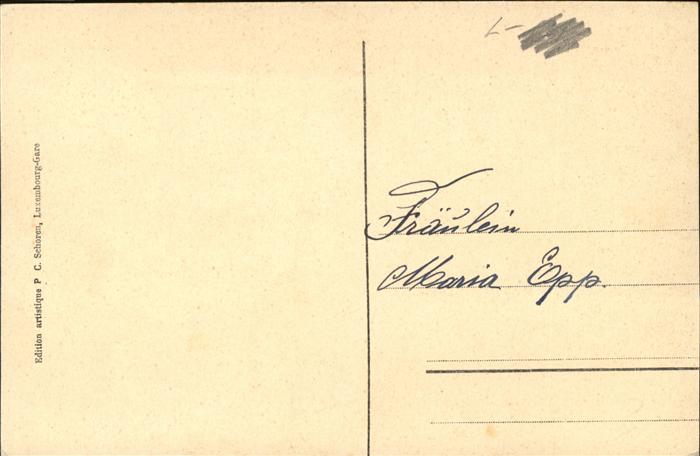 Edition artistique P C. Schoren, Luxembourg-Gare
Fräulein
Maria Epp.